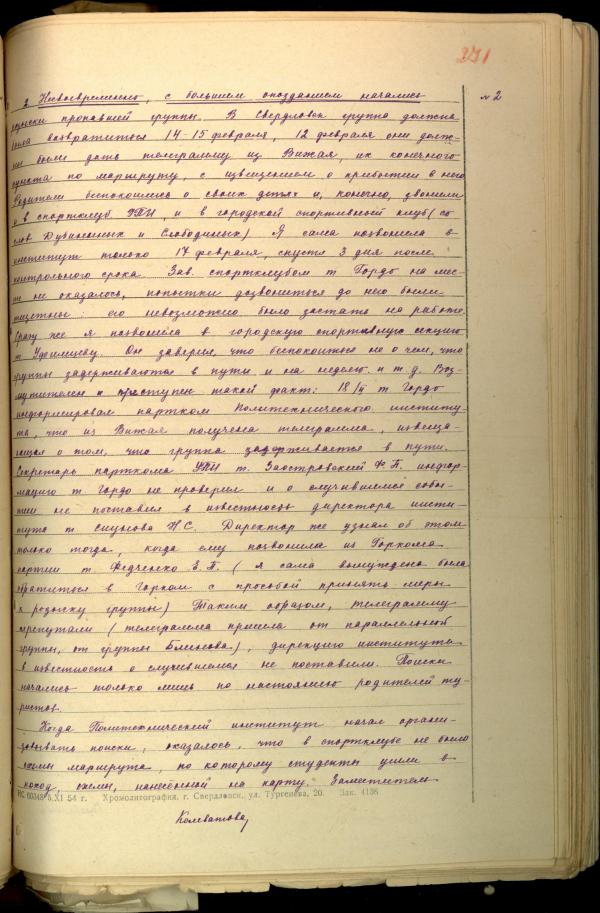 271
№ 2
2 Несвоевременно, с большим опозданием начались
розыски пропавшей группы. В Свердловск группа должна
была возвратиться 14-15 февраля, 12 февраля они долж-
ны были дать телеграмму из Вижая, их конечного
пункта по маршруту, с извещением о прибытии в него
Родители беспокоились о своих детях и, конечно, звонили
и в спортклуб УПИ, и в городской спортивный клуб (со
слов Дубининых и Слободиных) Я сама позвонила в
институт только 17 февраля, спустя 3 дня после
контрольного срока. Зав. спортклубом т Гордо на мес-
те не оказалось, попытки дозвониться до него были
тщетны: его невозможно было застать на работе.
Сразу же я позвонила в городскую спортивную секцию
т. Уфимцеву. Он заверил, что беспокоиться не о чем, что
группы задерживаются в пути и на неделю и т д. Воз-
мутителен и преступен такой факт: 18/II т Гордо
информировал партком Политехнического институ-
та, что из Вижая получена телеграмма, извеща-
ющая о том, что группа задерживается в пути.
Секретарь парткома УПИ т. Заостровский Ф.П. инфор-
мацию т Гордо не проверил и о случившемся собы-
тии не поставил в известность директора инсти-
тута т Сиунова Н С. Директор же узнал об этом
только тогда, когда ему позвонила из Горкома
партии т. Федченко Е.П. (я сама вынуждена была
обратиться в Горком с просьбой принять меры
к розыску группы) Таким образом, телеграмму
перепутали (телеграмма пришла от параллельной
группы, от группы Блинова), дирекцию института
в известность о случившемся не поставили. Поиски
начались только лишь по настоянию родителей ту-
ристов.
Когда Политехнический институт начал органи-
зовывать поиски, оказалось, что в спортклубе не было
схемы маршрута, по которому студенты ушли в
поход, схемы, нанесенной на карту. Заместитель
60348 5.XI 54 г. Хромолитография, г. Свердловск, ул. Тургенева, 20. Зак. 4136
Колеватова